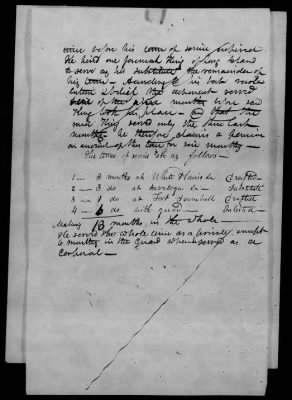 time before his term of service expired
He hired one Jeremiah King of Long Island
to serve as his substitute the remainder of
his term - According to his best recol-
lection & belief this declarant served
of the months before said
King took his place - and that the
said King served only the three last
months - he therefore claims a pension
on account of this tour for six months -
His terms of service tote as follows -
1 - 3 months at White Plains &c Drafted
2 - 3 do at Saratoga &c Substitute
3 - 1 do at Fort Trumbull Drafted
4 - 6 do with guard - Enlisted -
Making 13 months in the whole
He served the whole time as a private, except
6 months in the Guard when he served as a
corporal -